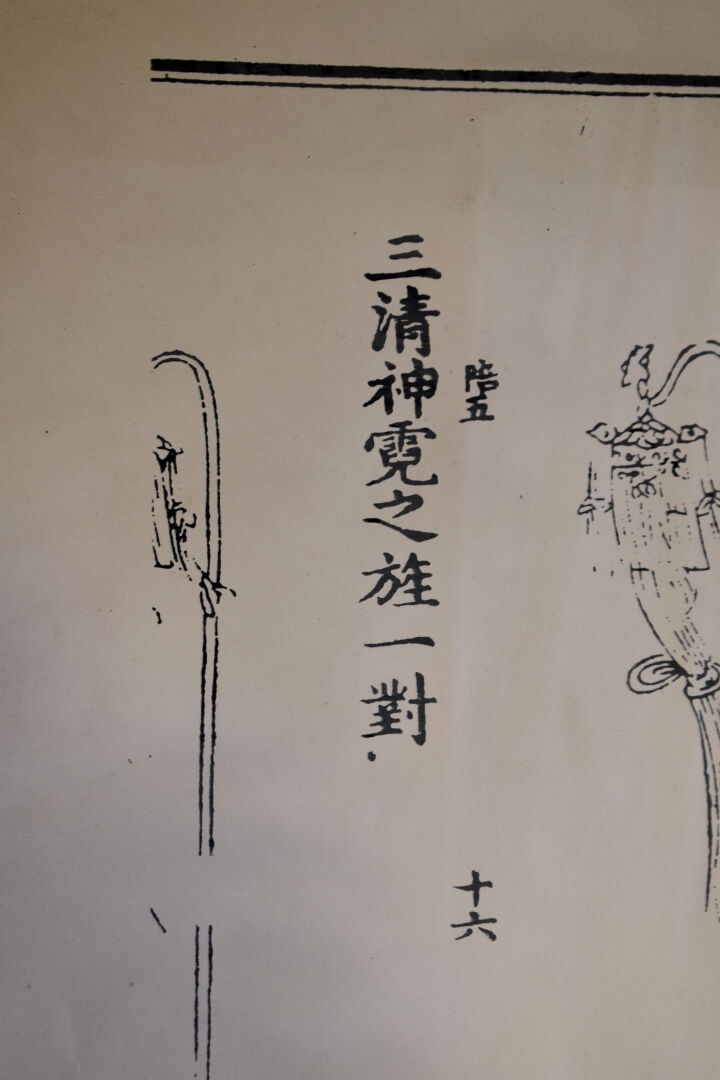 陪五
十六
三清神霓之旌一對